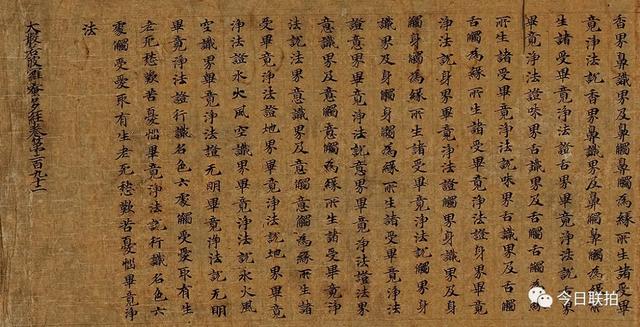 香界鼻識界及鼻觸鼻觸為緣所生諸受畢
竟淨法說香界鼻識界及鼻觸鼻觸為緣所
生諸受畢竟淨法證舌界畢竟淨法說舌界
畢竟淨法證味界舌識界及舌觸舌觸為緣
所生諸受畢竟淨法說味界舌識界及舌觸
舌觸為緣所生諸受畢竟淨法證身界畢竟
淨法說身界畢竟淨法證觸界身識界及身
觸身觸為緣所生諸受畢竟淨法說觸界身
識界及身觸身觸為緣所生諸受畢竟淨法
證意界畢竟淨法說意界畢竟淨法證法界
意識界及意觸意觸為緣所生諸受畢竟淨
法說法界意識界及意觸意觸為緣所生諸
受畢竟淨法證地界畢竟淨法說地界畢竟
淨法證水火風空識界畢竟淨法說水火風
空識界畢竟淨法證无明畢竟淨法說无明
畢竟淨法證行識名色六處觸受愛取有生
老死愁歎苦憂惱畢竟淨法說行識名色六
處觸受愛取有生老死愁歎苦憂惱畢竟淨
法
大般若波羅蜜多經卷第二百九十二
今日联拍